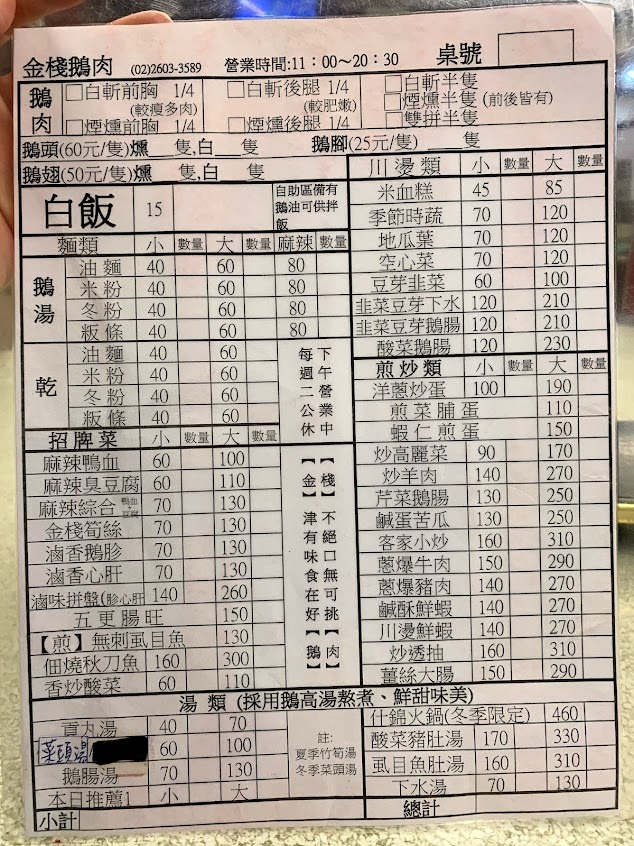 金棧鵝肉 (02)2603-3589 營業時間:11：00~20：30 桌號
鵝肉
□白斬前胸 1/4 □白斬後腿 1/4 □白斬半隻
(較瘦多肉) (較肥嫩) □煙燻半隻 (前後皆有)
□煙燻前胸 1/4 □煙燻後腿 1/4 □雙拼半隻
鵝頭(60元/隻)燻__隻,白__隻 鵝腳(25元/隻)__隻
鵝翅(50元/隻)燻__隻,白__隻
白飯 15 自助區備有鵝油可供拌飯
麵類 小 數量 大 數量 麻辣 數量
鵝湯
油麵 40 60 80
米粉 40 60 80
冬粉 40 60 80
粄條 40 60 80
乾
油麵 40 60
米粉 40 60
冬粉 40 60
粄條 40 60
下午營業中
每週二公休
招牌菜 小 數量 大 數量
麻辣鴨血 60 100
麻辣臭豆腐 60 110
麻辣綜合 鴨血豆腐 70 130
金棧筍絲 70 130
滷香鵝胗 70 130
滷香心肝 70 130
滷味拼盤(胗心肝 140 260
五更腸旺 150
【煎】無刺虱目魚 130
佃燒秋刀魚 160 300
香炒酸菜 60 110
【棧】不絕口無可挑【肉】
【金】津有味食在好【鵝】
川燙類 小 數量 大 數量
米血糕 45 85
季節時蔬 70 120
地瓜葉 70 120
空心菜 70 120
豆芽韭菜 60 100
韭菜豆芽下水 120 210
韭菜豆芽鵝腸 120 210
酸菜鵝腸 120 230
煎炒類 小 數量 大 數量
洋蔥炒蛋 100 190
煎菜脯蛋 110
蝦仁煎蛋 150
炒高麗菜 90 170
炒羊肉 140 270
芹菜鵝腸 130 250
鹹蛋苦瓜 130 250
客家小炒 160 310
蔥爆牛肉 150 290
蔥爆豬肉 140 270
鹹酥鮮蝦 140 270
川燙鮮蝦 140 270
炒透抽 160 310
薑絲大腸 150 290
湯類 (採用鵝高湯熬煮、鮮甜味美)
貢丸湯 40 70
菜頭湯 60 100
鵝腸湯 70 130
本日推薦1 小 大
註:
夏季竹筍湯
冬季菜頭湯
什錦火鍋(冬季限定) 460
酸菜豬肚湯 170 330
虱目魚肚湯 160 310
下水湯 70 130
小計 總計